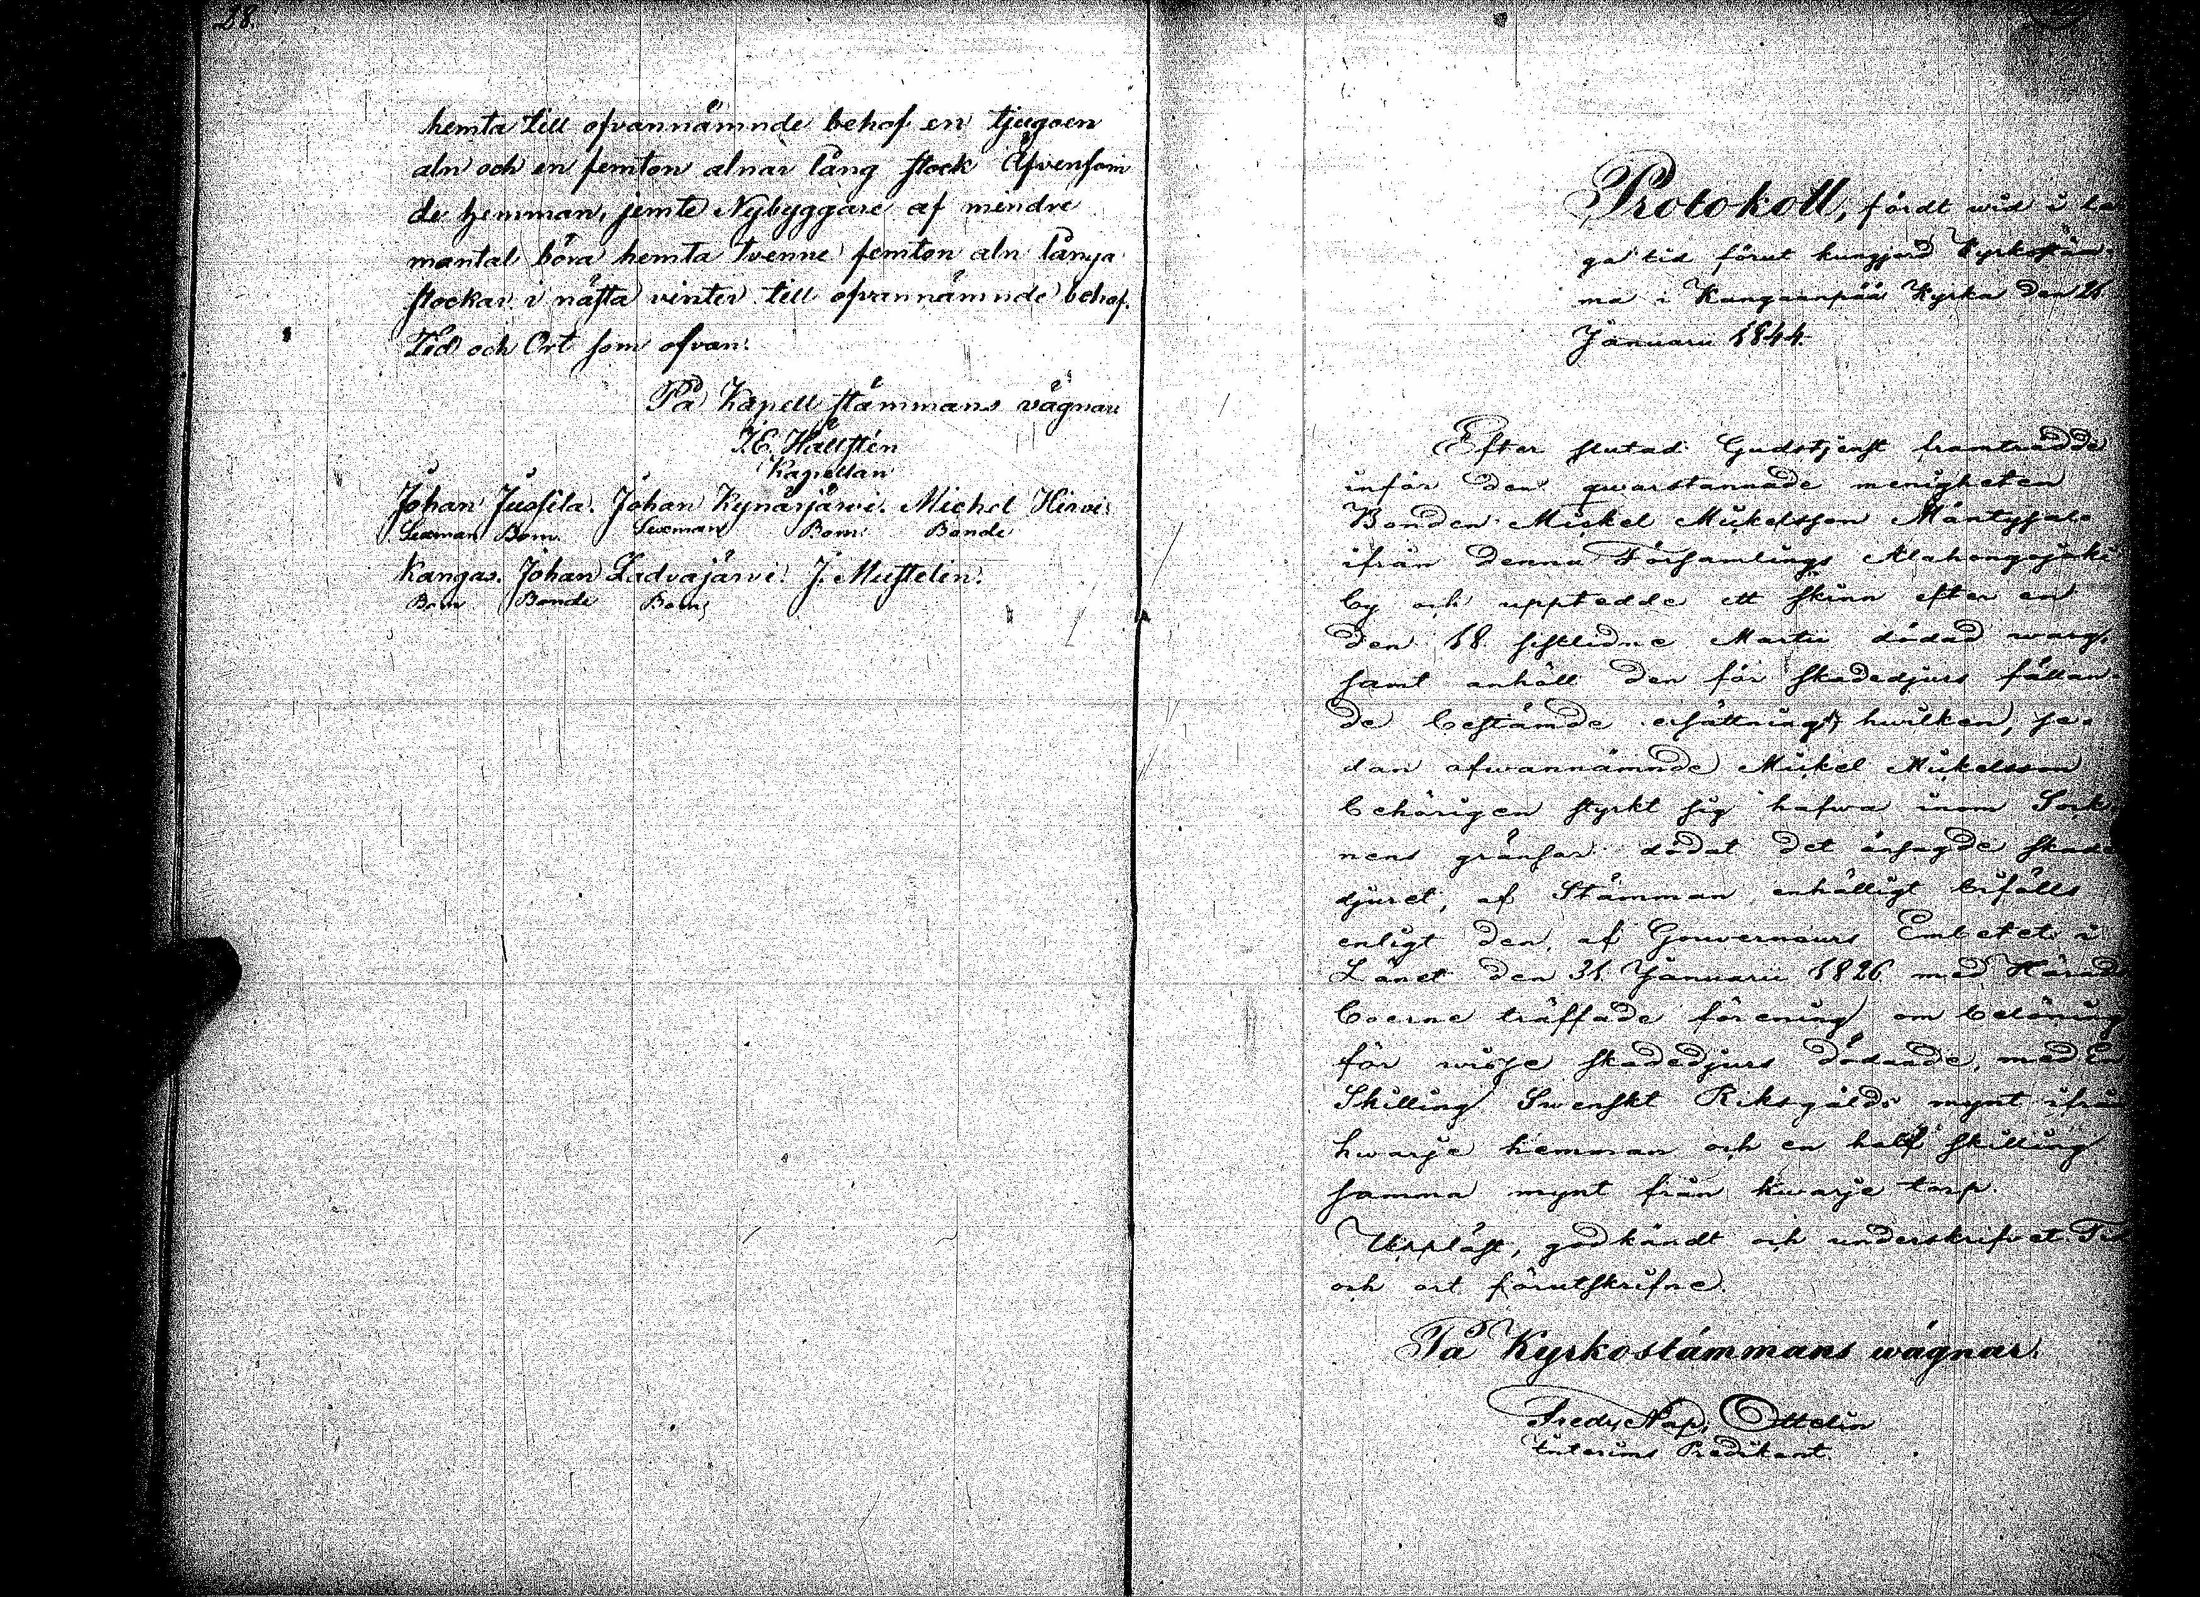 28.
hemta till ofvannämnde behof en tjugoen
aln och en femton alnar lång stock Äfvensom
de hemman, jemte Nybyggare af mindre
mantal böra hemta tvenne femton aln långa
stockar i nästa vinter till ofvannämnde behof.
Tid och Ort som ofvan.
På Kapell stämmans vägnar
J.E. Hällstén
Kapellan
Johan Juosila. Johan Kynäsjärvi. Michel Hirvi
Sexman Bom. Sexman Bom. Bonde
kangas. Johan Ladvajärvi. J. Mustelin.
Bom Bonde Bom
Protokoll, fördt wid i la
ga tid förut kungjord Kyrkostäm-
ma i Kangaanpää Kyrka den 21
Januarii 1844.
Efter slutad Gudstjenst framträdde
inför den qwarstannade menigheten
Bonden Mickel Mickelsson Mäntysalo
ifrån denna Församlings Alahongojoki
by och upptedde ett skinn efter en
den 18 sistlidne Martii dödad warg,
samt anhöll den för skadedjurs fällan-
de bestämde ersättning, hwilken, se-
dan ofwannämnde Mickel Mickelsson
behörigen styrkt sig hafwa inom Sock-
nens gränsar dödat det ansagde skade
djuret, af Stämman enhälligt bifölls
enligt den, af Gouverneurs Embetet i
Länet den 31 Januarii 1826 med Härads
boerne träffade förening om belöning
för wisse skadedjurs dödande, med En
Skilling Swenskt Riksgälds mynt ifrån
hwarje hemman och en half skilling
samma mynt från hwarje torp.
Uppläst, godkändt och underskrifvet Tid
och ort förutskrifne.
På Kyrkostämmans wägnar.
Fredr. Nap. Ottelin
Interims Predikant.